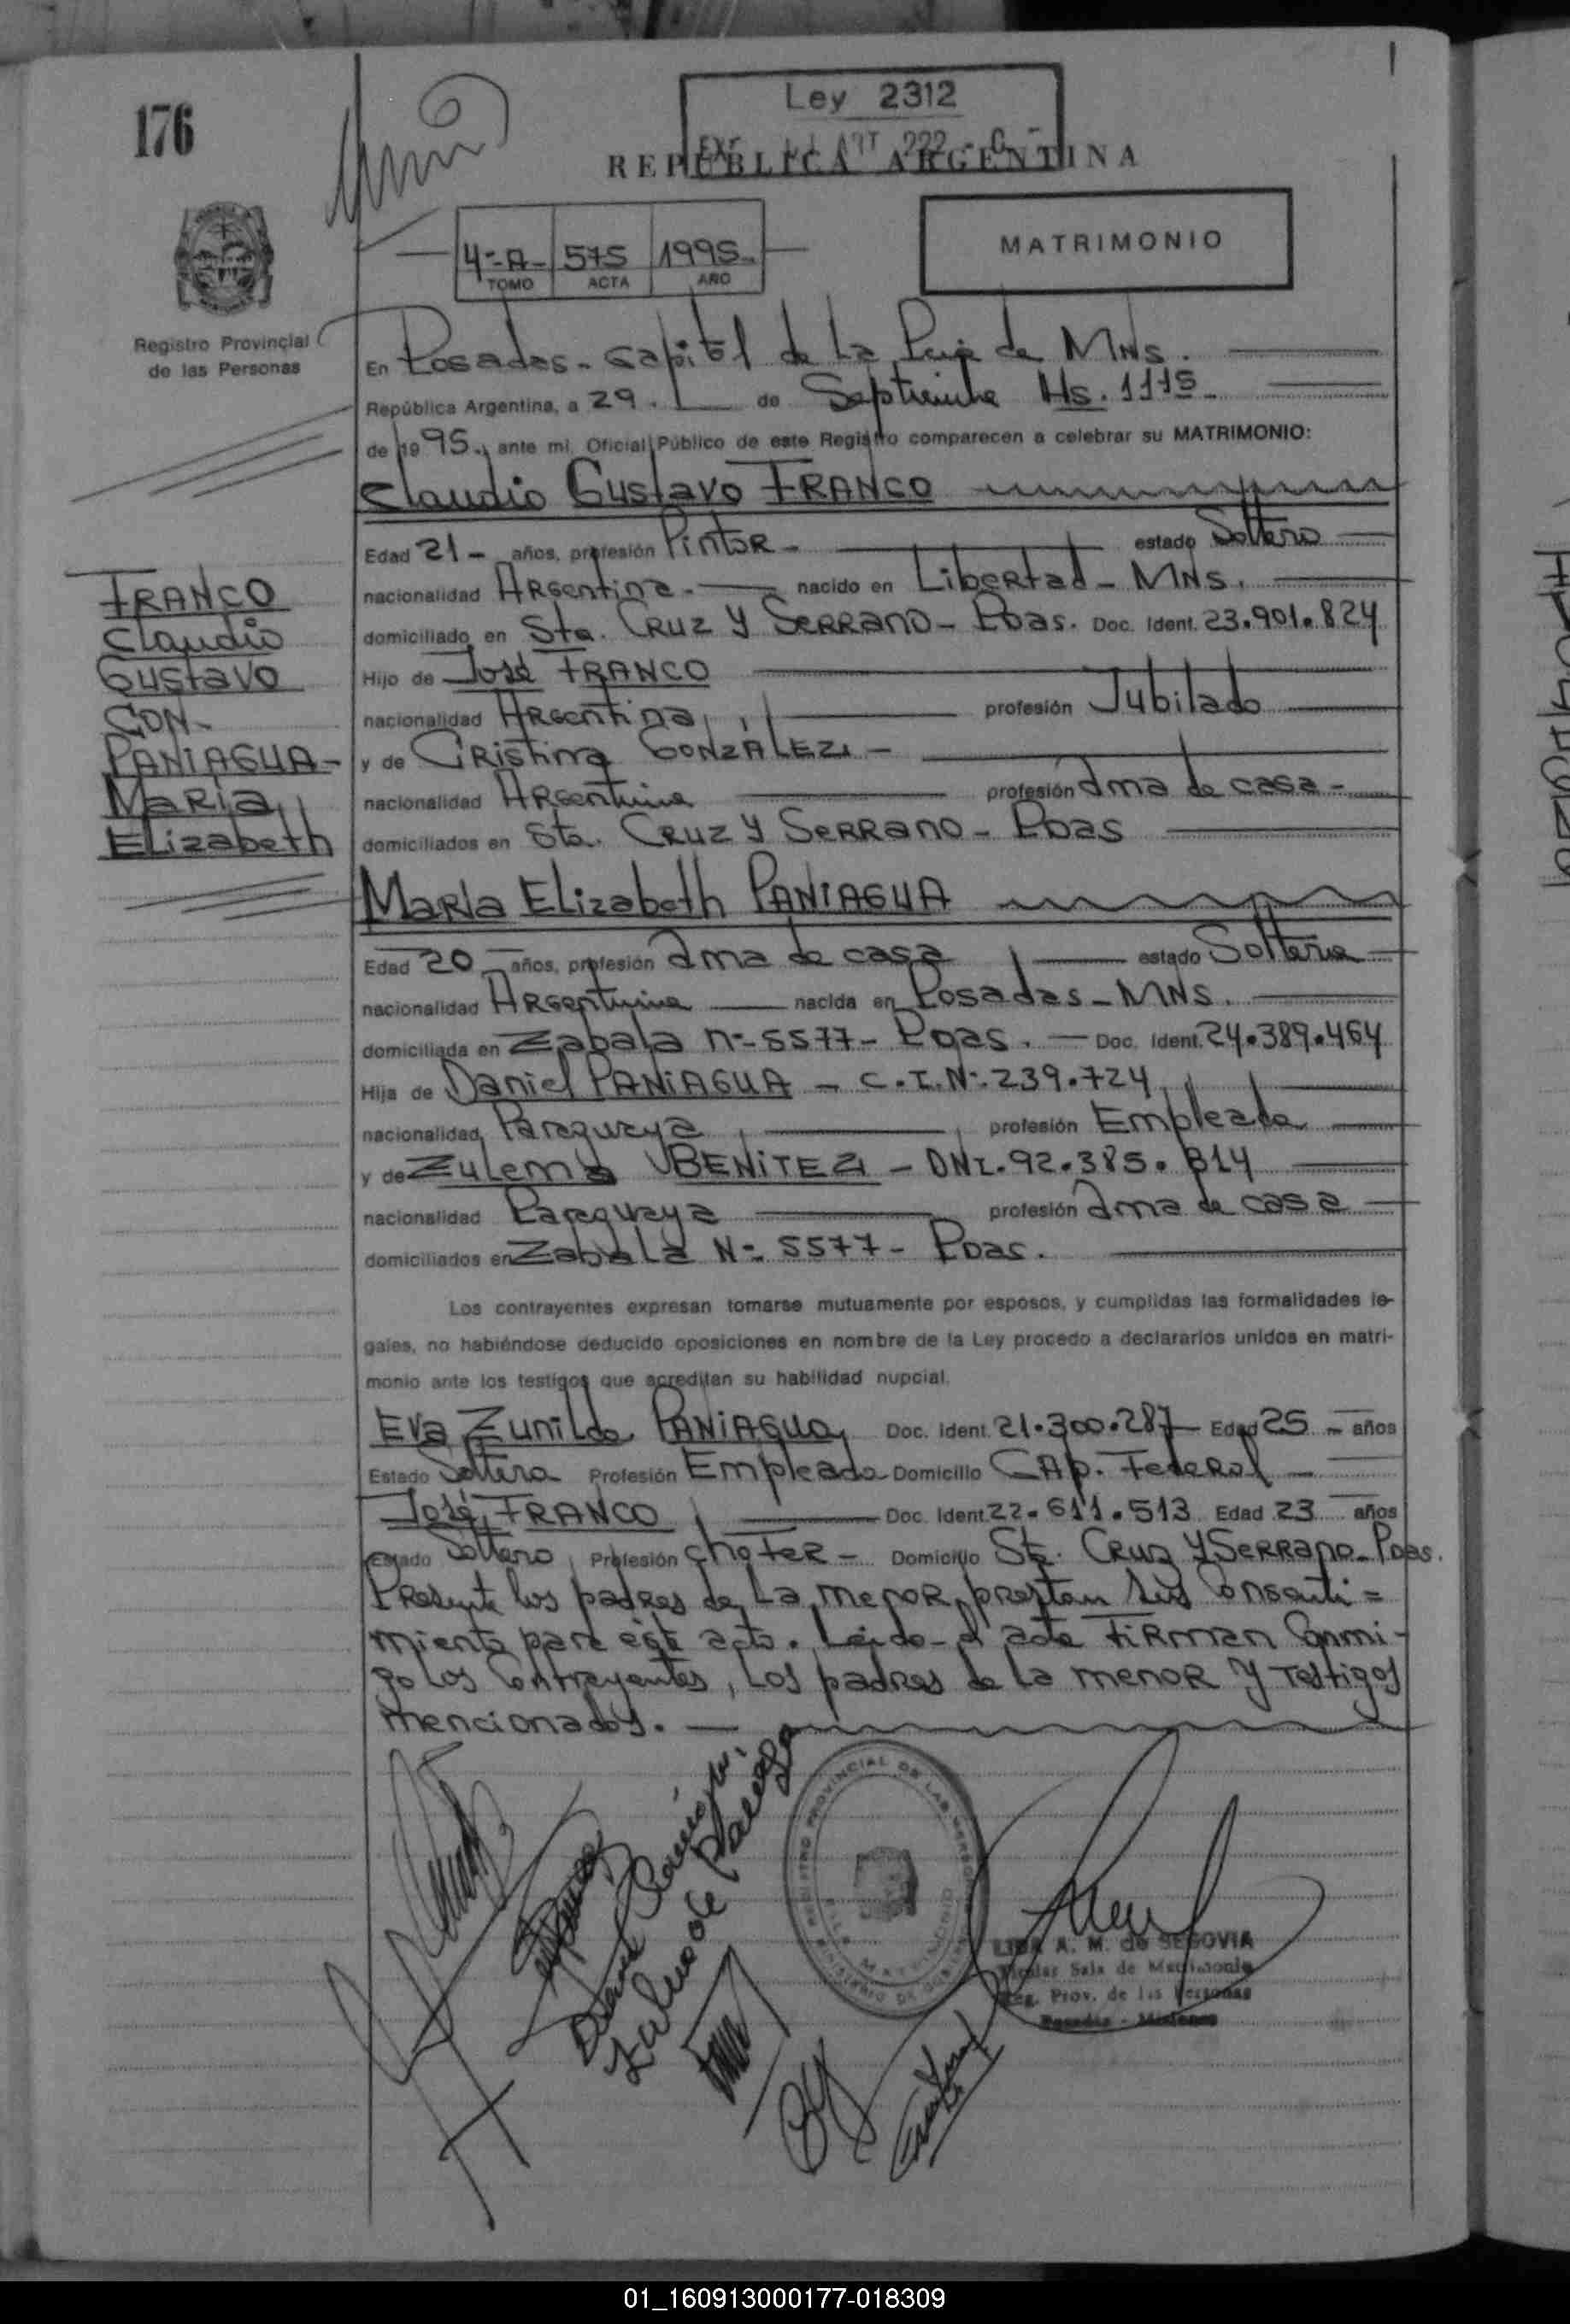 176
Ley 2312
REPUBLICA ARGENTINA
4º-A- 575 1995.
TOMO ACTA AÑO
MATRIMONIO
Registro Provincial
de las Personas
En Posadas - Capital de La Pcia de MNS.
República Argentina, a 29. de Septiembre Hs. 1115-
de 1995., ante mí, Oficial Público de este Registro comparecen a celebrar su MATRIMONIO:
Claudio Gustavo FRANCO
Edad 21 - años, profesión Pintor - estado Soltero
nacionalidad Argentina. - nacido en Libertad - MNS.
domiciliado en Sta. Cruz y Serrano - Pdas. Doc. Ident. 23.901.824
Hijo de José FRANCO
nacionalidad Argentina, profesión Jubilado
y de Cristina GONZÁLEZ -
nacionalidad Argentina profesión ama de casa -
domiciliados en Sta. Cruz y Serrano - Pdas
FRANCO
Claudio
Gustavo
CON -
PANIAGUA -
María
Elizabeth
María Elizabeth PANIAGUA
Edad 20 - años, profesión ama de casa estado Soltera
nacionalidad Argentina nacida en Posadas - MNS.
domiciliada en Zabala Nº 5577 - Pdas. - Doc. Ident. 24.389.464
Hija de Daniel PANIAGUA - C.I.Nº 239.724
nacionalidad Paraguaya, profesión Empleado
y de Zulema BENITEZ - DNI. 92.385.814
nacionalidad Paraguaya profesión ama de casa
domiciliados en Zabala Nº 5577 - Pdas.
Los contrayentes expresan tomarse mutuamente por esposos, y cumplidas las formalidades le-
gales, no habiéndose deducido oposiciones en nombre de la Ley procedo a declararlos unidos en matri-
monio ante los testigos que acreditan su habilidad nupcial.
Eva Zunilda PANIAGUA, Doc. Ident. 21.300.287 Edad 25 - años
Estado Soltera Profesión Empleada Domicilio Cap. Federal -
José FRANCO, Doc. Ident. 22.611.513 Edad 23 años
Estado Soltero, Profesión chofer - Domicilio Sta. Cruz y Serrano - Pdas.
Presente los padres de La menor, prestan sus Consenti=
miento para este acto. Leído el acta firman Conmi-
go los Contrayentes, Los padres de La menor y testigos
mencionados. -
REGISTRO PROVINCIAL DE LAS PERSONAS
A. M. de SEGOVIA
Titular Sala de Matrimonio
Reg. Prov. de las Personas
Posadas - Misiones
01_160913000177-018309